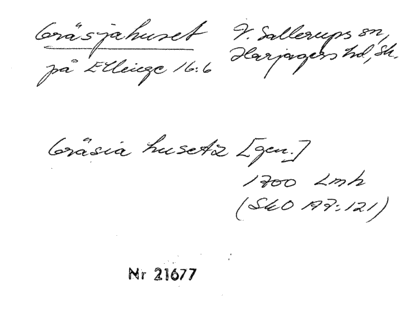 Gräsjahuset V. Sallerups sn,
på Ellinge 16:6 Harjagers hd, Sk.
Gräsia husetz [gen.]
1700 Lmh
(SkO A7:121)
Nr 21677